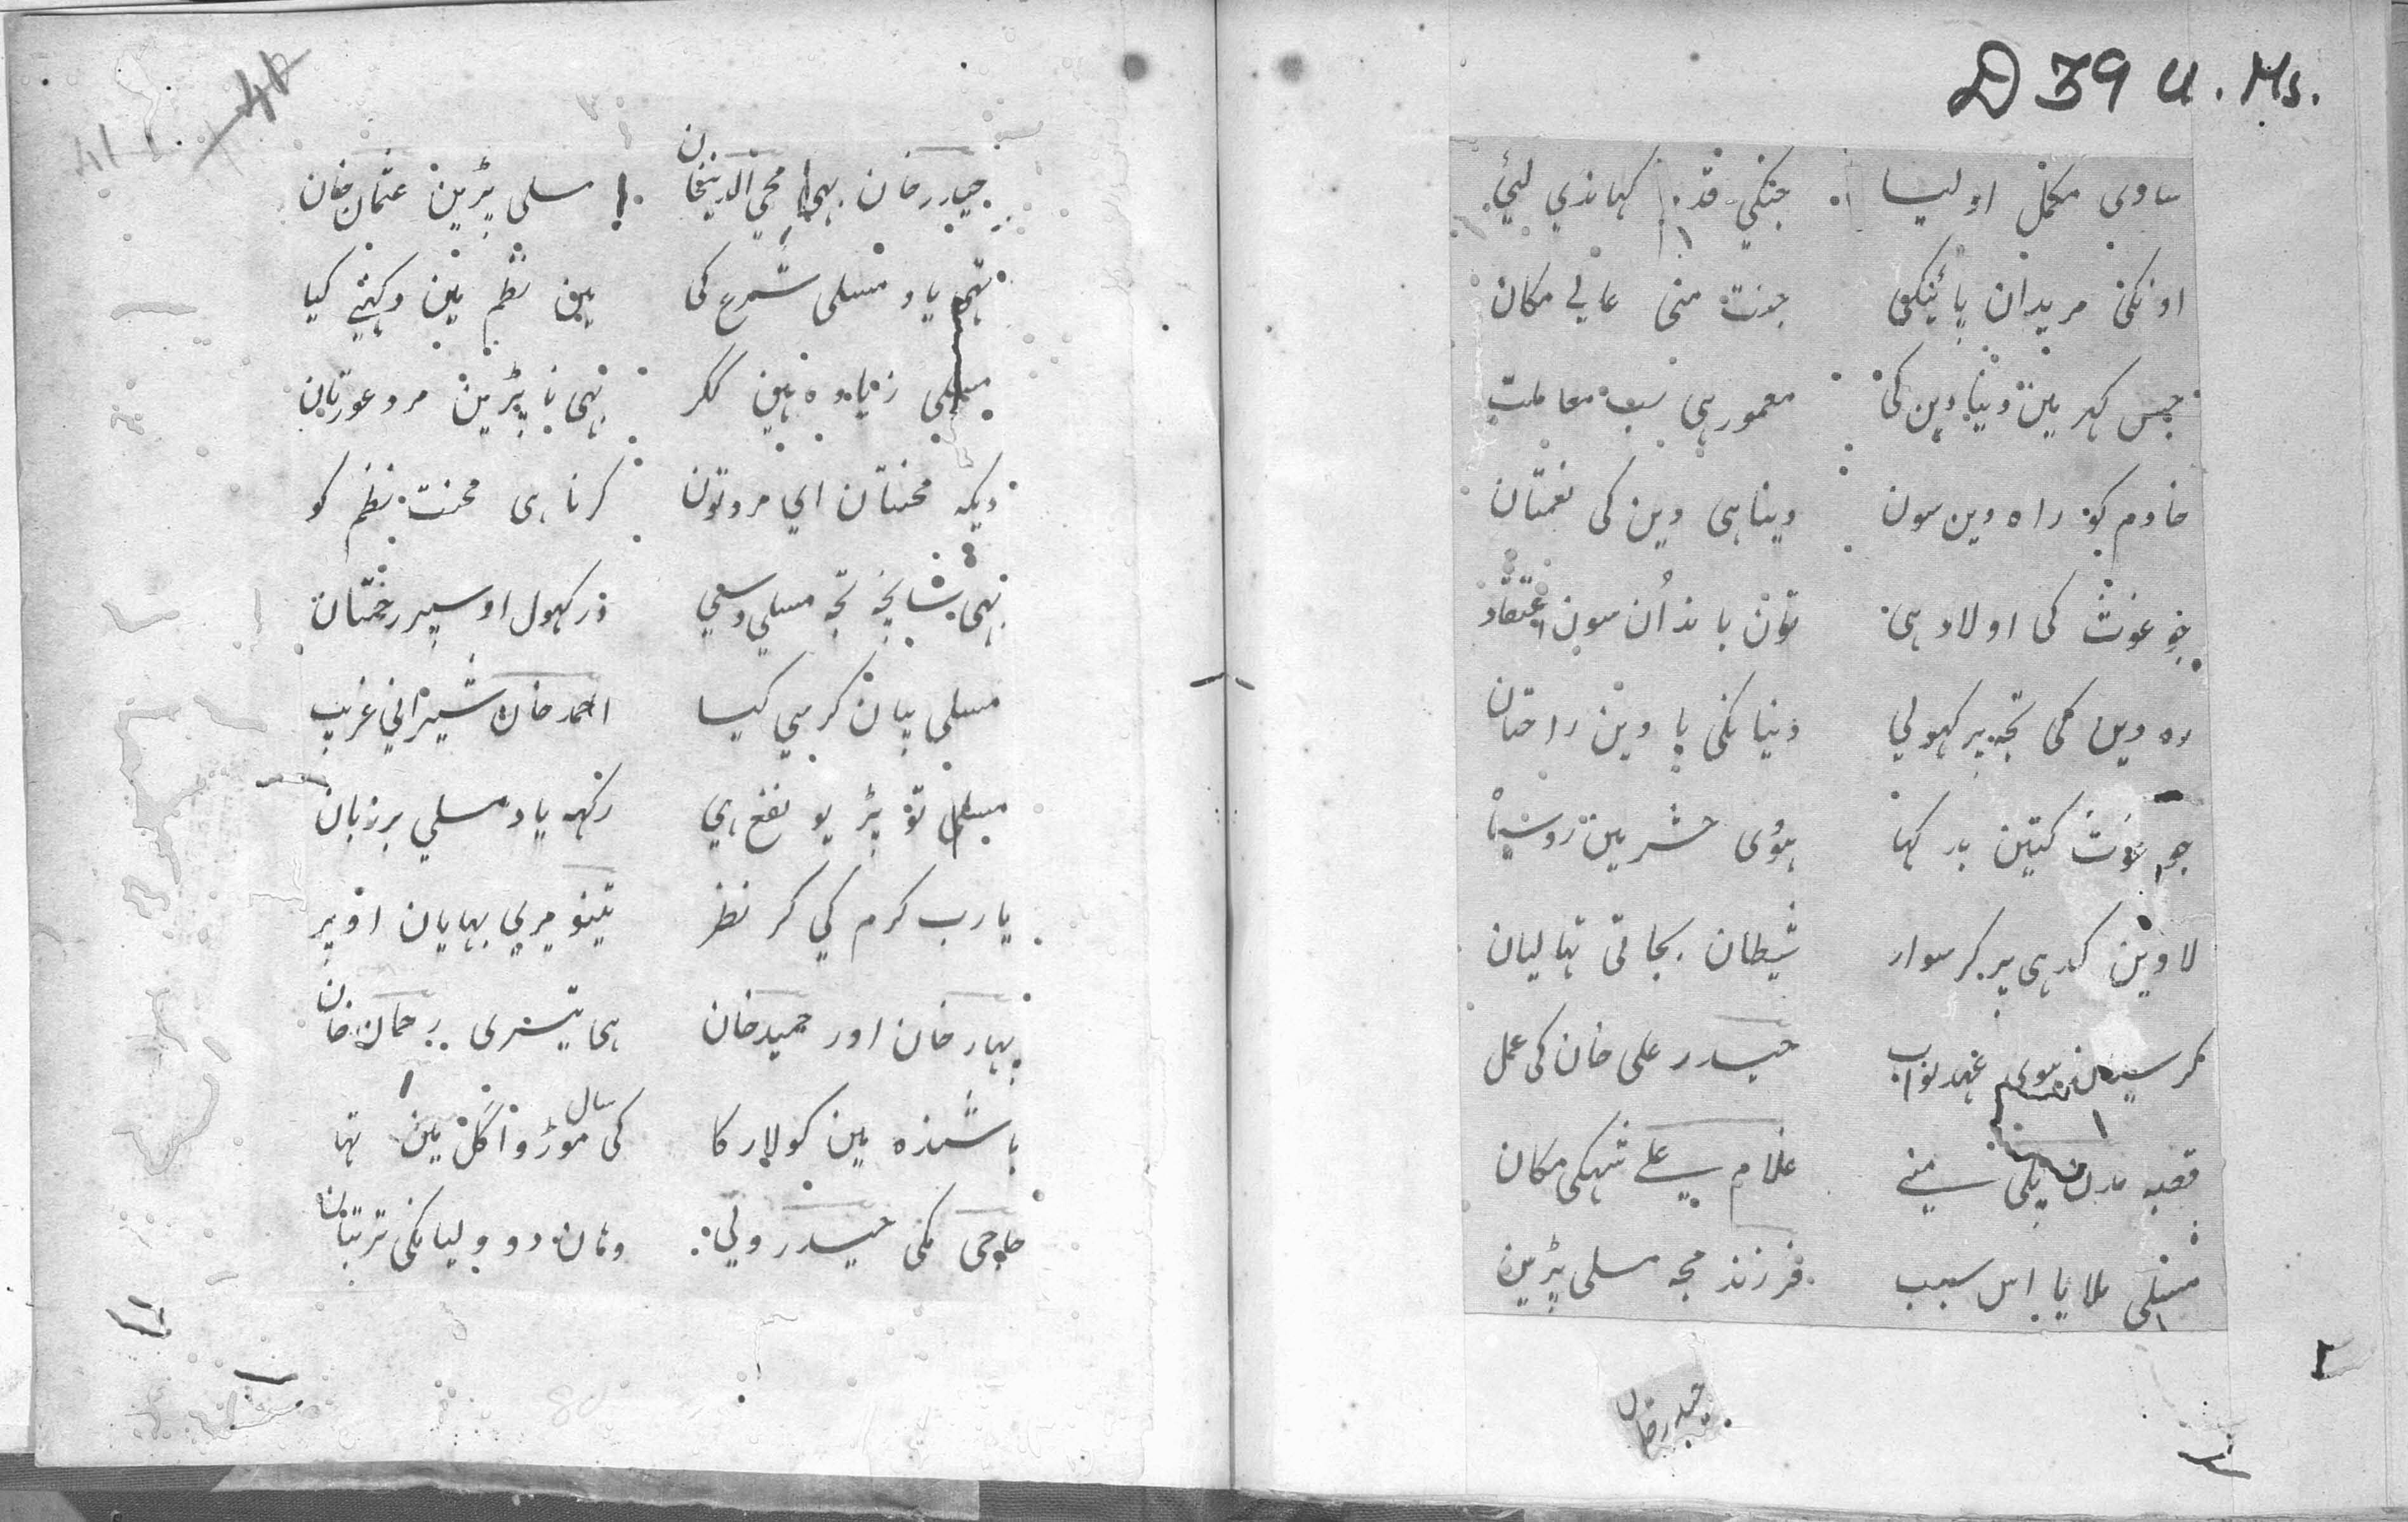 D 39 U. Ms.
هادی مکمل اولیا جنکی قد کهاندی لیٔی
اونکی مریدان پائینکی جنت منی عالی مکان
جس کهر مین دنیا دین کی معمور هی سب معاملت
خادم کو راه دین سون دیناهی دین کی نعمتان
جو غوث کی اولاد هی تون باند اُن سون اعتقاد
ره دین کی تجه پر کهولی دنیا نکی پاوین راحتان
جو غوث کیتین بد کها هوی حشر مین روسیا
لاوین کدهی پر کر سوار شیطان بجاتی تهالیان
حیدر علی خان کی عمل
قصبه مدن پلی منی غلام علی شهکی مکان
مسلی ملایا اس سبب فرزند مجه مسلی پڑین
حیدر خان
41
40
حیدر خان بهی محی الدینخان مسلی پڑین عثمان خان
تهی یاد مسلی شرع کی یین نظم مین دکهنی کیا
مسلی زیاده هین مگر نهی نا پڑین مرد عورتان
دیکه محنتان ای مرد تون کرناهی محنت نظم کو
نهی تجه مسلی وسی در کهول اوسپر رحمتان
مسلی بیان کر بی کیا احمد خان شیرانی غریب
مسلی تو پڑ یو نفع هی رکهه یاد مسلی بر زبان
یارب کرم کی کر نظر تینو میری بهایان اوپر
بهار خان اور حمید خان هی تیسری رحمان خان
باشنده مین کولار کا کی سال موڑواگل مین تها
حاجی نکی حیدر ولی وهان دو ولیانکی تربتان